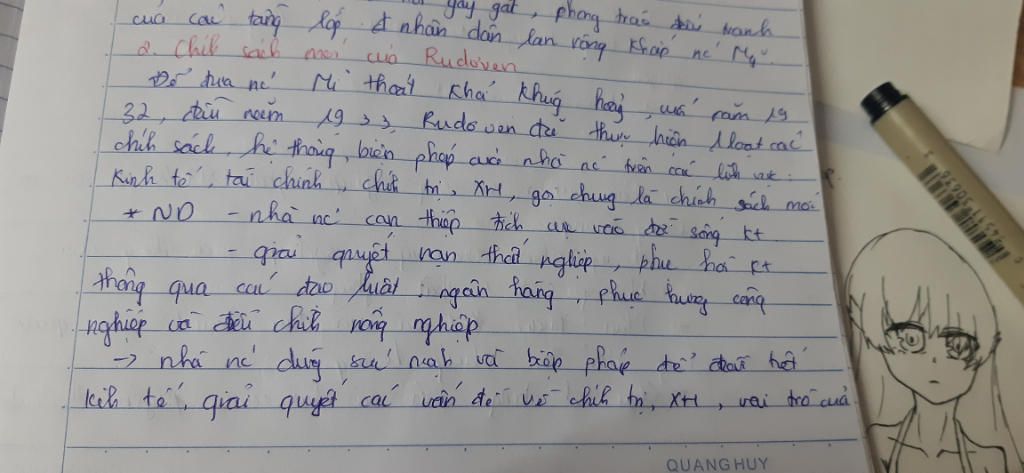 gay gắt, phong trào đấu tranh
của các tầng lớp nhân dân lan rộng khắp nc' Mỹ.
2. Chíh sách mới của Rudơven
Để đưa nc' Mĩ thoát khỏi khủg hoảg, cuối năm 19
32, đầu năm 1933, Rudơven đã thực hiện 1 loạt các
chíh sách, hệ thống, biện pháp của nhà nc' trên các lĩnh vực:
Kinh tế, tài chính, chíh trị, XH, gọi chung là chính sách mới
* ND - nhà nc' can thiệp tích cực vào đời sống kt
- giải quyết nạn thất nghiệp, phục hồi kt
thông qua các đạo luật: ngân hàng, phục hưng công
nghiệp và điều chỉh nông nghiệp
→ nhà nc' dùg sức mạh và biện pháp để điều tiết
kih tế, giải quyết các vấn đề về chíh trị, XH, vai trò của
QUANG HUY